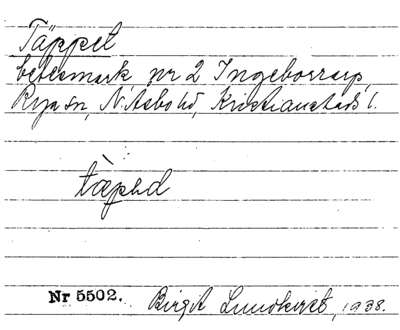 Täppet
betesmark nr 2 Ingeborrarp,
Rya sn, N. Åsbo hd, Kristianstads l.
tæp̀əd
Nr 5502. Birgit Lundkvist, 1938.